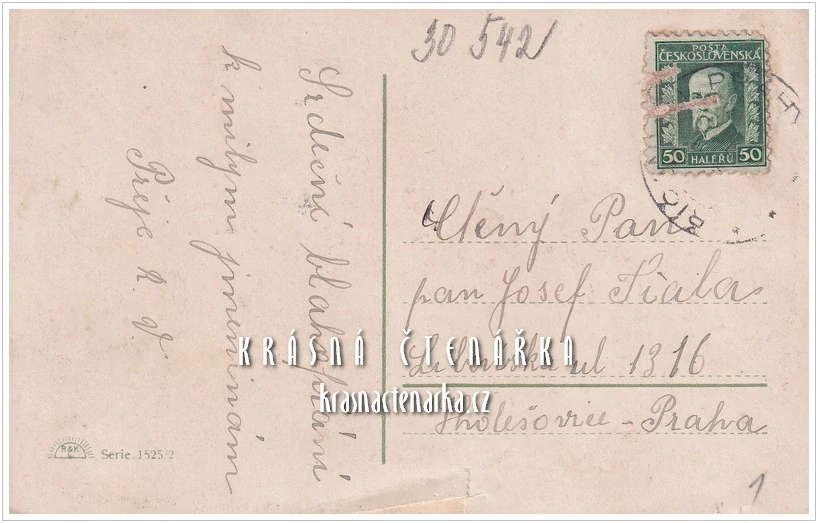 30 542
POŠTA
ČESKOSLOVENSKÁ
50 HALÉŘŮ 50
Srdeční blahopřání
k milým jmeninám
Přeje R. V.
Ctěný Pan
pan Josef Fiala
ul 1316
Holešovice - Praha
KRÁSNÁ ČTENÁŘKA
krasnactenarka.cz
R&K
Serie. 1525/2
1